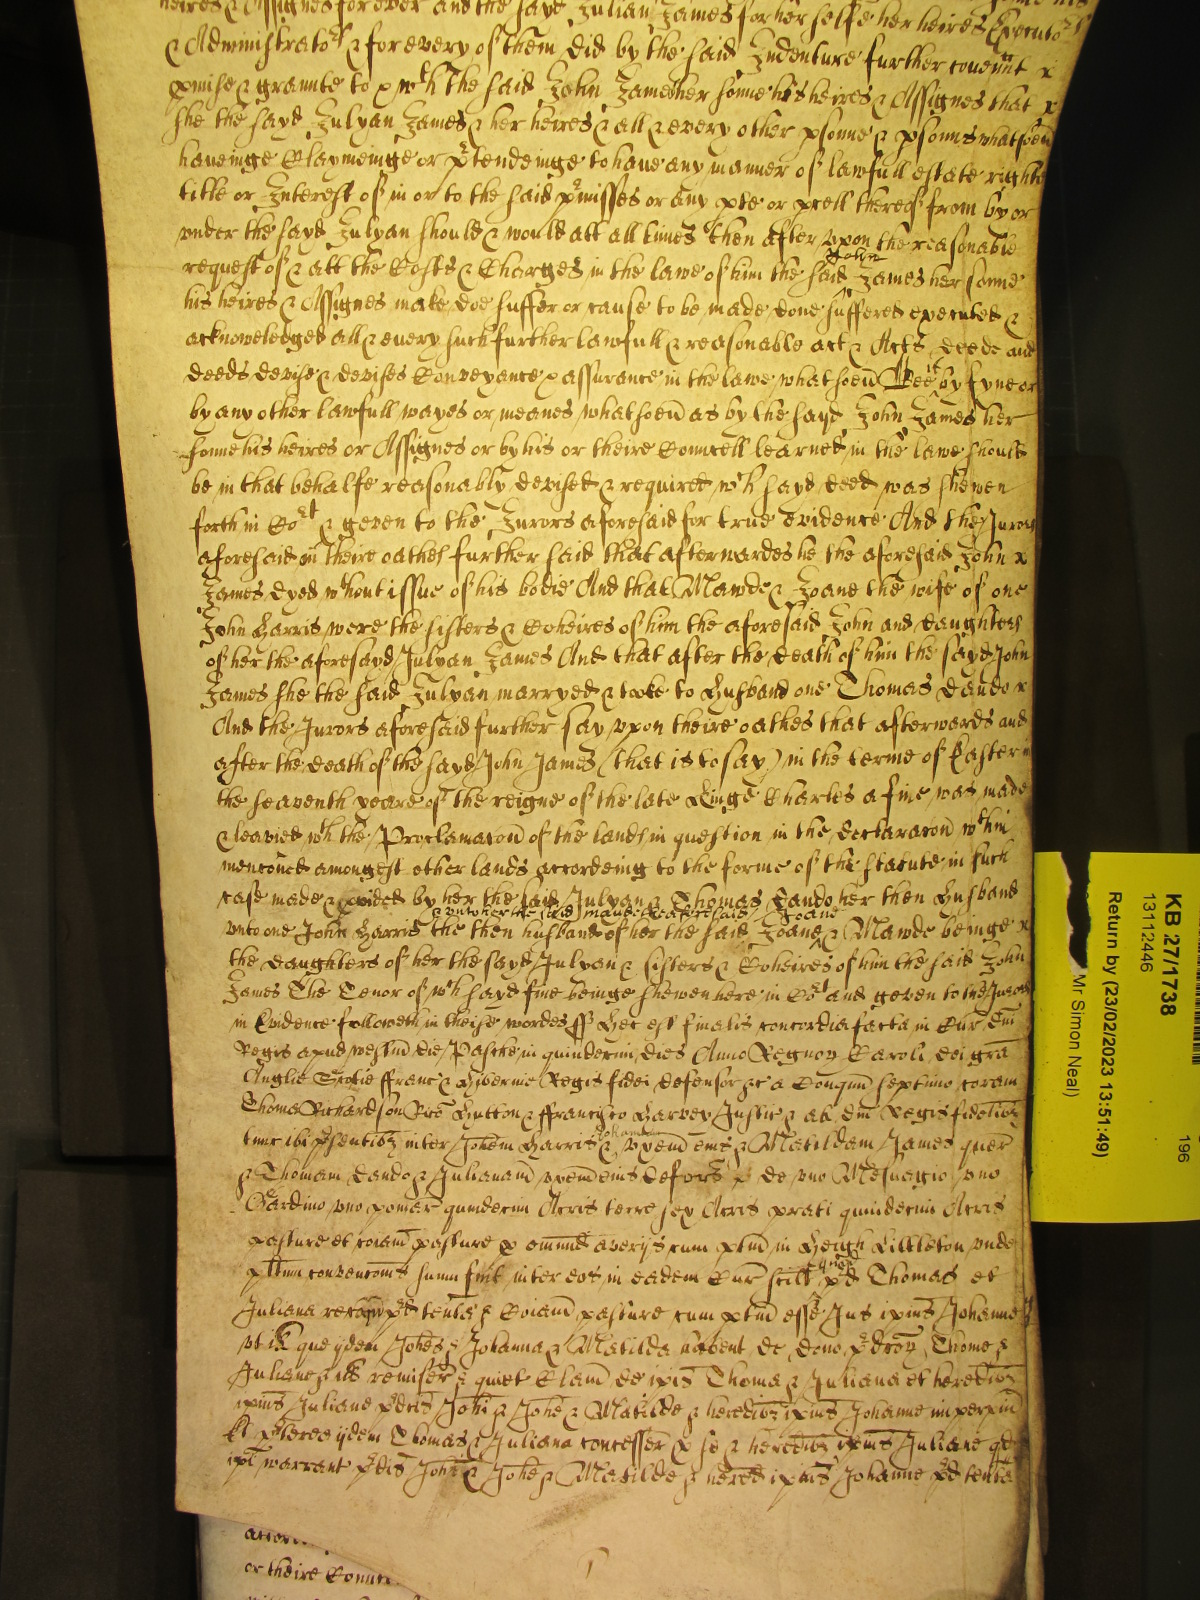 heires & Assignes for ever and the sayd Julian James for her selfe her heires Executors
& Administrators & for every of them did by the said Indenture further covennt x
pmise & graunte to & wth the said John James her sonne his heires & Assignes that x
she the sayd Julyan James & her heires & all & every other psonne & psonns whatsoeu
haveinge Claymeinge or ptendeinge to haue any manner of lawfull estate righte
title or Interest of in or to the said pmisses or any pte or pcell thereof from by or
vnder the sayd Julyan should & would att all times then after vpon the reasonable
request of & att the Costs & Charges in the lawe of him the said John James her sonne
his heires & Assignes make doe suffer or cause to be made done suffered executed &
acknowledged all & euery such further lawfull & reasonable act & Acts deede and
deeds devise & devises Conveyance & assurance in the lawe whatsoeu Bee it by fyne or
by any other lawfull wayes or meanes whatsoeu as by the sayd John James her
sonne his heires or Assignes or by his or theire Councell learned in the lawe should
be in that behalfe reasonably devised & required wch sayd deed was shewen
forth in Cort & geven to the Jurors aforesaid for true evidence And the Jurors
aforesaid theire oathes further said that afterwardes he the aforesaid John x
James dyed wthout issue of his bodie And that Mawde & Joane the wife of one
John Harris were the sisters & Coheires of him the aforesaid John and daughters
of her the aforesayd Julyan James And that after the death of him the sayd John
James she the said Julyan marryed & tooke to Husband one Thomas Dando x
And the Jurors aforesaid further say vpon theire oathes that afterwards and
after the death of the sayd John James (that is to say) in the terme of Easter in
the seaventh yeare of the reigne of the late Kinge Charles a fine was made
& levied wth the Proclamacon of the lands in question in the declaracon wthin
menconed amongest other lands accordeing to the forme of the statute in such
case made & pvided by her the said Julyan & Thomas Dando her then Husband
vnto one John Harris the then husband of her the said Joane & vnto her the said Mawde & aforesaid Joane & Mawde beinge x
the daughters of her the sayd Julyan & sisters & Coheires of him the said John
James The Tenor of wch sayd fine beinge shewen here in Cort and geven to the Jurors
in Evidence followeth in theise wordes ss Hec est finalis concordia facta in Cur dni
Regis apud westm die Pasche in quindecim dies Anno Regnor Caroli dei gra
Anglie Scotie ffranc & Hibernie Regis fidei defensor &c a Conqu septimo coram
Thoma Richardson Hutton & ffrancisco Harvey Justic & al dni Regis fidelibz
tunc ibi psentibz inter Johem Harris & Johannam vxem eius & Matildam James quer
& Thomam Dando & Julianam vxem eius deforc de vno Mesuagio vno
Gardino vno pomar quindecim Acris terre sex Acris prati quindecim Acris
pasture et coiam pasture p omnid averijs cum ptin in Heigh Littleton vnde
plitum convencois sum fuit inter eos in eadem Cur scilt qd pd Thomas et
Juliana recogn pd tenta & Coiam pasture cum ptin esse Jus ipius Johanne
vt ill que ijdem Johes & Johanna & Matilda habent de dono pdcor Thome &
Juliane & ill remiser & quiet Clam de ipis Thoma & Juliana et heredibz
ipius Juliane pdcis Johi & Johe & Matilde & heredibz ipius Johanne imperpm
Et pterea ijdem Thomas & Juliana concesser p se & heredibz ipius Juliane qd
ipi warrant pdcis Johi & Johe & Matilde & hered ipius Johanne pd tenta
or theire Coun
KB 27/1738
13112446
Return by (23/02/2023 13:51:49)
Mr Simon Neal)
196